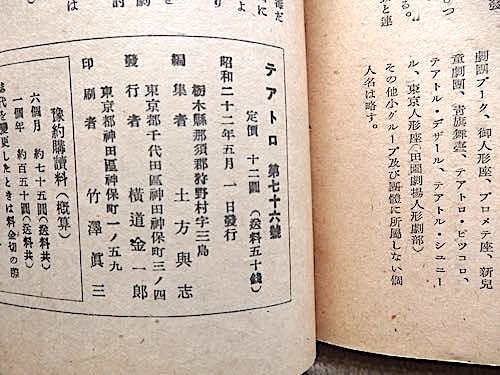 劇團プーク、御人形座、プロメテ座、新兒
童劇團、青族舞臺、テアトロ・ピツコロ、
テアトル・デザール、テアトル・シユニー
ル、東京人形座（田園劇場人形劇部）
その他小グループ及び團體に所属しない個
人名は略す。
テアトロ 第七十六號
定價 十二圓（送料五十錢）
昭和二十二年五月一日發行
栃木縣那須郡狩野村字三島
編集者 土方與志
東京都千代田區神田神保町三ノ四
發行者 横道金一郎
東京都神田區神保町一ノ五九
印刷者 竹澤眞三
豫約購讀料（概算）
六個月 約七十五圓（送料共）
一個年 約百五十圓（送料共）
誌代を變更したときは料金切の際